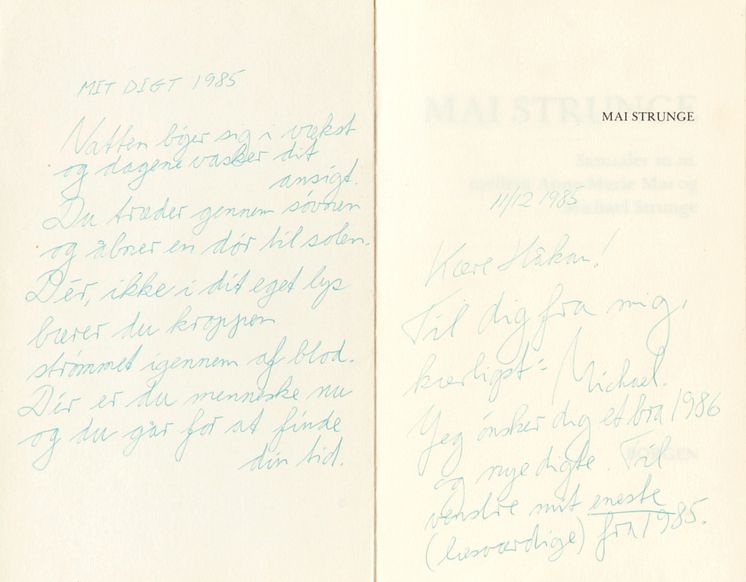 MIT DIGT 1985
Natten bøjer sig i vækst
og dagene vasker dit
ansigt.
Du træder gennem søvnen
og åbner en dør til solen.
Dér, ikke i dit eget lys
bærer du kroppen
strømmet igennem af blod.
Dér er du menneske nu
og du går for at finde
din tid.
MAI STRUNGE
MAI STRUNGE
Samtaler m.m.
mellem Anne Marie Mai og
Michael Strunge
11/12 1985
Kære Håkan!
Til dig fra mig,
kærligst: Michael.
Jeg ønsker dig et bra 1986
og nye digte. Til
BORGEN
venstre mit eneste
(læsværdige) fra 1985.